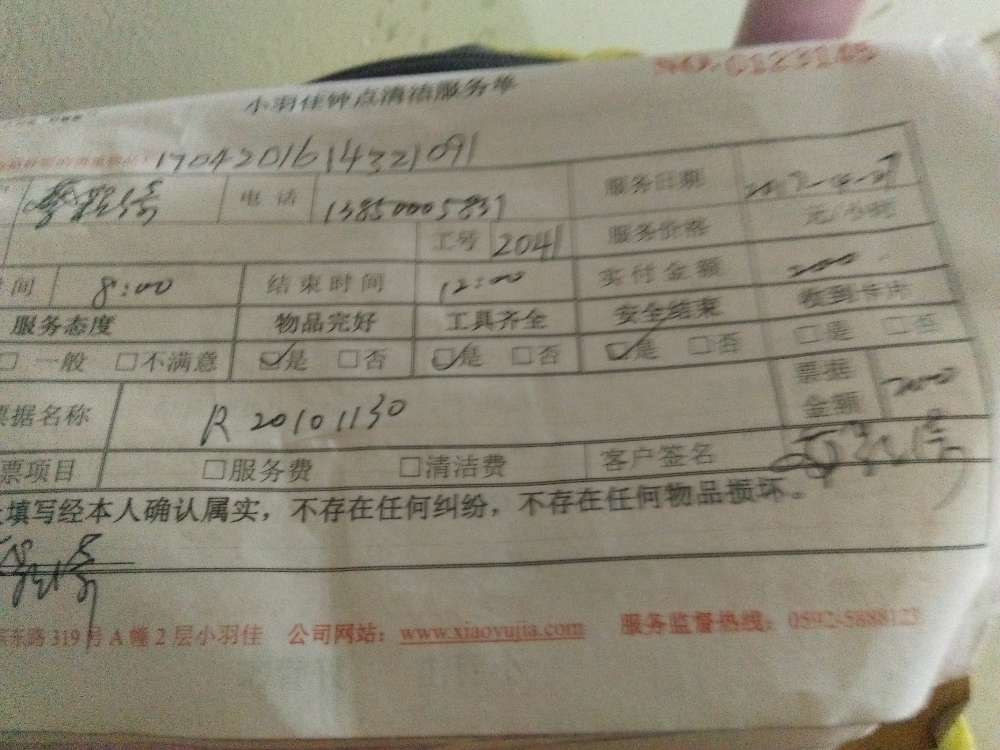 小羽佳钟点清洁服务单
1704201614321091
电话 13850005837 服务日期
工号 2041 服务价格 元/小时
间 8:00 结束时间 12:00 实付金额 200
服务态度 物品完好 工具齐全 安全结束 收到卡片
□一般 □不满意 ☑是 □否 ☑是 □否 ☑是 □否 □是 □否
票据名称 R 20101130 票据金额
票项目 □服务费 □清洁费 客户签名
填写经本人确认属实，不存在任何纠纷，不存在任何物品损坏。
东路319号A幢2层小羽佳 公司网站：www.xiaoyujia.com 服务监督热线：0592-5888123